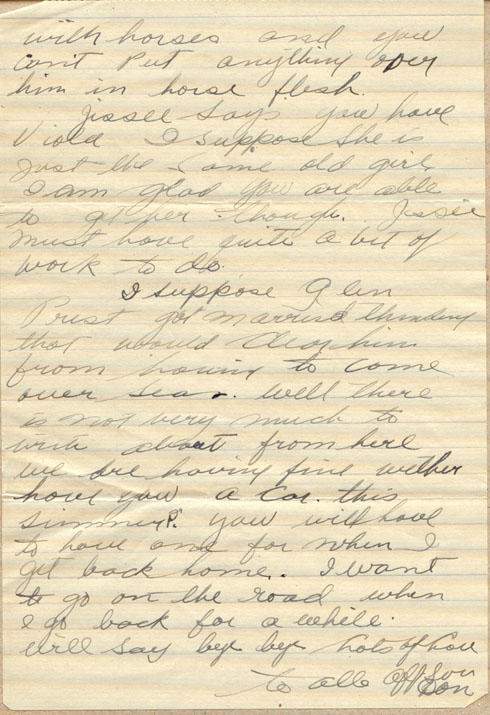 with horses and you
cant Put anything over
him in horse flesh.
Jissee says you have
Viola I suppose she is
Just the same old girl
I am glad you are able
to get her though. Jissie
must have quite a bit of
work to do.
I suppose Glen
Priest got married thinking
that would clear him
from having to come
over seas. Well there
is not very much to
write about from here
we are having fine wether
have you a Car. this
simmer?. you will have
to have one for when I
get back home. I want
to go on the road when
I go back for a while.
Will say bye bye Lots of love
to all Son